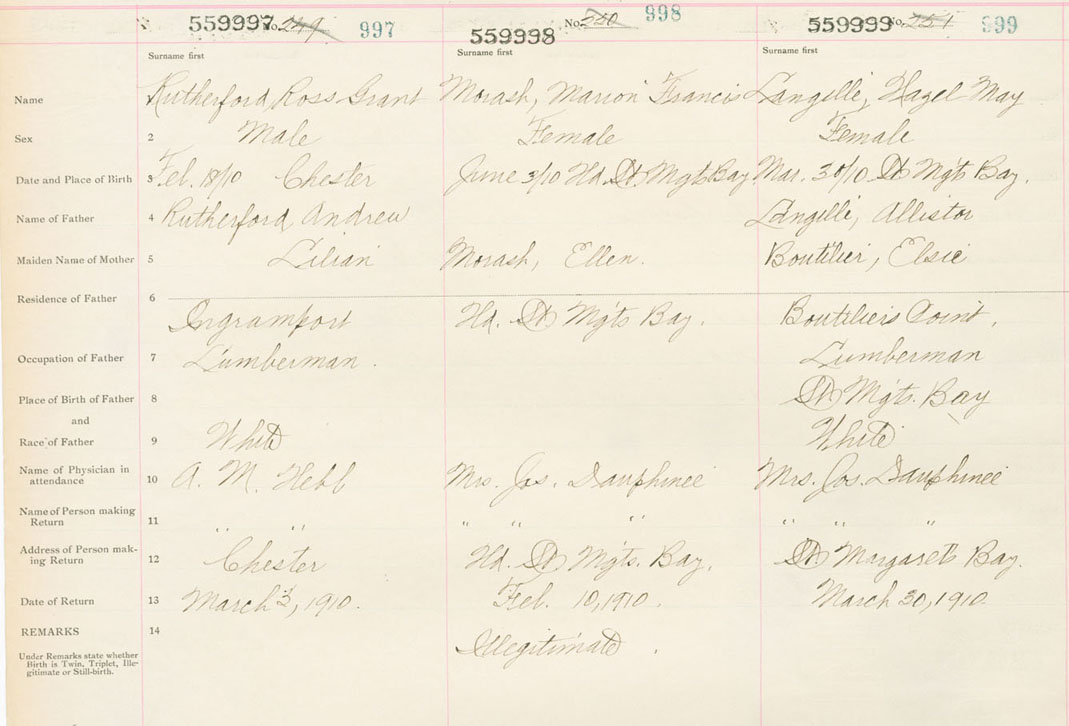 559997 No. 249 997 559998 No. 250 998 559999 No. 251 999
Surname first Surname first Surname first
Name Rutherford, Ross Grant Morash, Marion Francis Langille, Hazel May
Sex 2 Male Female Female
Date and Place of Birth 3 Feb. 18/10 Chester June 3/10 Hd. St. Mgts Bay Mar. 30/10 St Mgts Bay.
Name of Father 4 Rutherford, Andrew Langille, Allistor
Maiden Name of Mother 5 Lilian Morash, Ellen. Boutilier, Elsie
Residence of Father 6
Ingramport Hd. St Mgts Bay. Boutiliers Point.
Occupation of Father 7 Lumberman. Lumberman
Place of Birth of Father 8 St Mgts. Bay
and
Race of Father 9 White White
Name of Physician in
attendance 10 A. M. Hebb Mrs. Jos. Dauphinee Mrs. Jos. Dauphinee
Name of Person making
Return 11 " " " " " " " "
Address of Person mak-
ing Return 12 Chester Hd. St Mgts. Bay. St Margarets Bay.
Date of Return 13 March 3, 1910. Feb. 10, 1910. March 30, 1910.
REMARKS 14 Illegitimate.
Under Remarks state whether
Birth is Twin, Triplet, Ille-
gitimate or Still-birth.